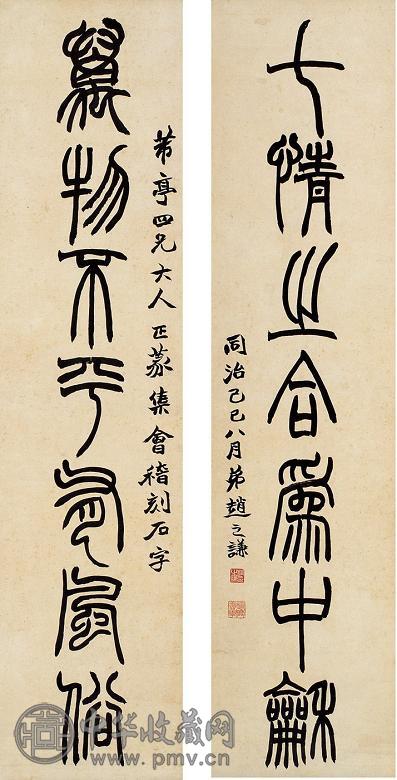 七情之合爲中龢
同治己巳八月弟趙之謙
芾亭四兄大人正篆集會稽刻石字
萬物不平風俗
中华收藏网
www.pmv.cn